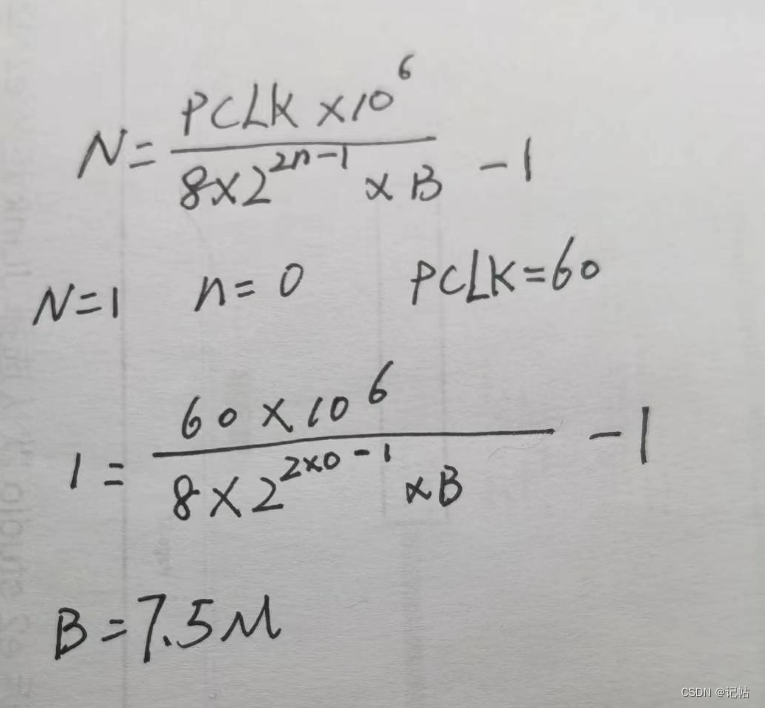 N = \frac{PCLK × 10^6}{8 × 2^{2n-1} × B} - 1
N = 1 n = 0 PCLK = 60
1 = \frac{60 × 10^6}{8 × 2^{2×0-1} × B} - 1
B = 7.5M
CSDN @记帖